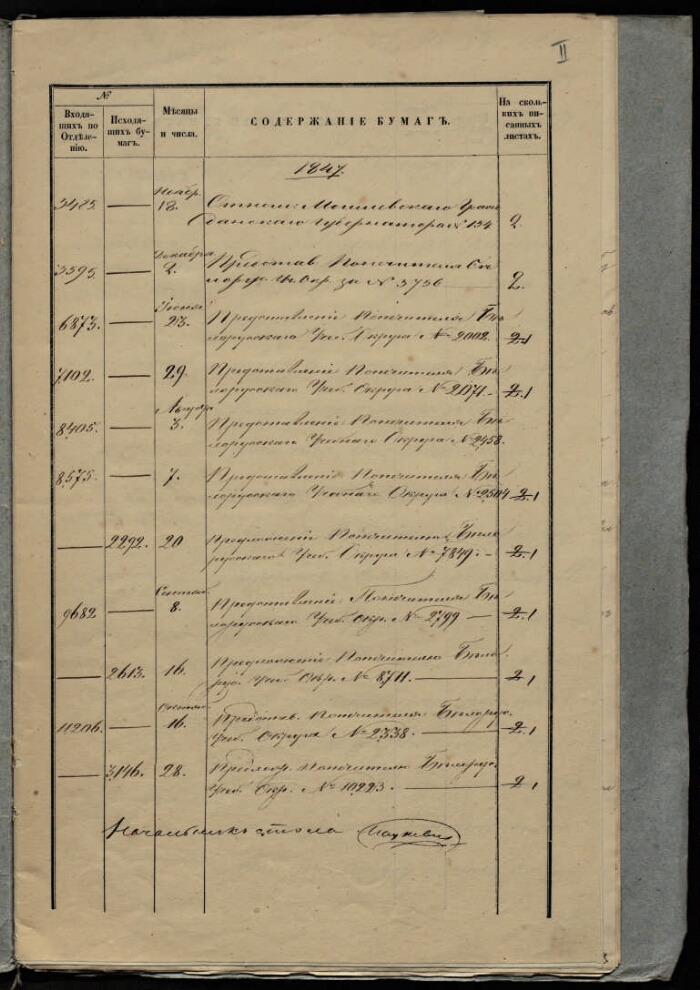 II
№
Входящихъ по Отдѣленію.
Исходящихъ бумагъ.
Мѣсяцы и числа.
СОДЕРЖАНІЕ БУМАГЪ.
На сколькихъ писанныхъ листахъ.
1847.
3485. — Ноябр. 18. Отнош. Могилевскаго Граж
данскаго Губернатора № 134 2.
3395. — Декабря 2. Представ. Попечителя Бѣ
лорус. Уч. Окр. за № 3756 — 2.
6873. — 23. Представленіе Попечителя Бѣ
лорусскаго Учеб. Округа № 2002. 2. 1
7102. — 29. Представленіе Попечителя Бѣ
лорусскаго Учеб. Округа № 2071. — 2. 1
8405. — Августа 3. Представленіе Попечителя Бѣ
лорусскаго Учебнаго Округа № 2458.
8575. — 7. Представленіе Попечителя Бѣ
лорусскаго Учебнаго Округа № 2504 2. 1
— 2292. 20 Предложеніе Попечителю Бѣло
русскаго Учеб. Округа № 7849. — 2. 1
9682 — Сентяб. 8. Представленіе Попечителя Бѣ
лорусскаго Учеб. Окр. № 2799 — 2. 1
— 2613. 16. Предложеніе Попечителю Бѣло
рус. Учеб. Окр. № 8711. — 2. 1
11206. — Октяб. 16. Представ. Попечителя Бѣлорус.
Учеб. Округа № 2338. — 2. 1
— 3146. 28. Предлож. Попечителю Бѣлорус.
Учеб. Окр. № 10223. — 2. 1
Начальникъ стола